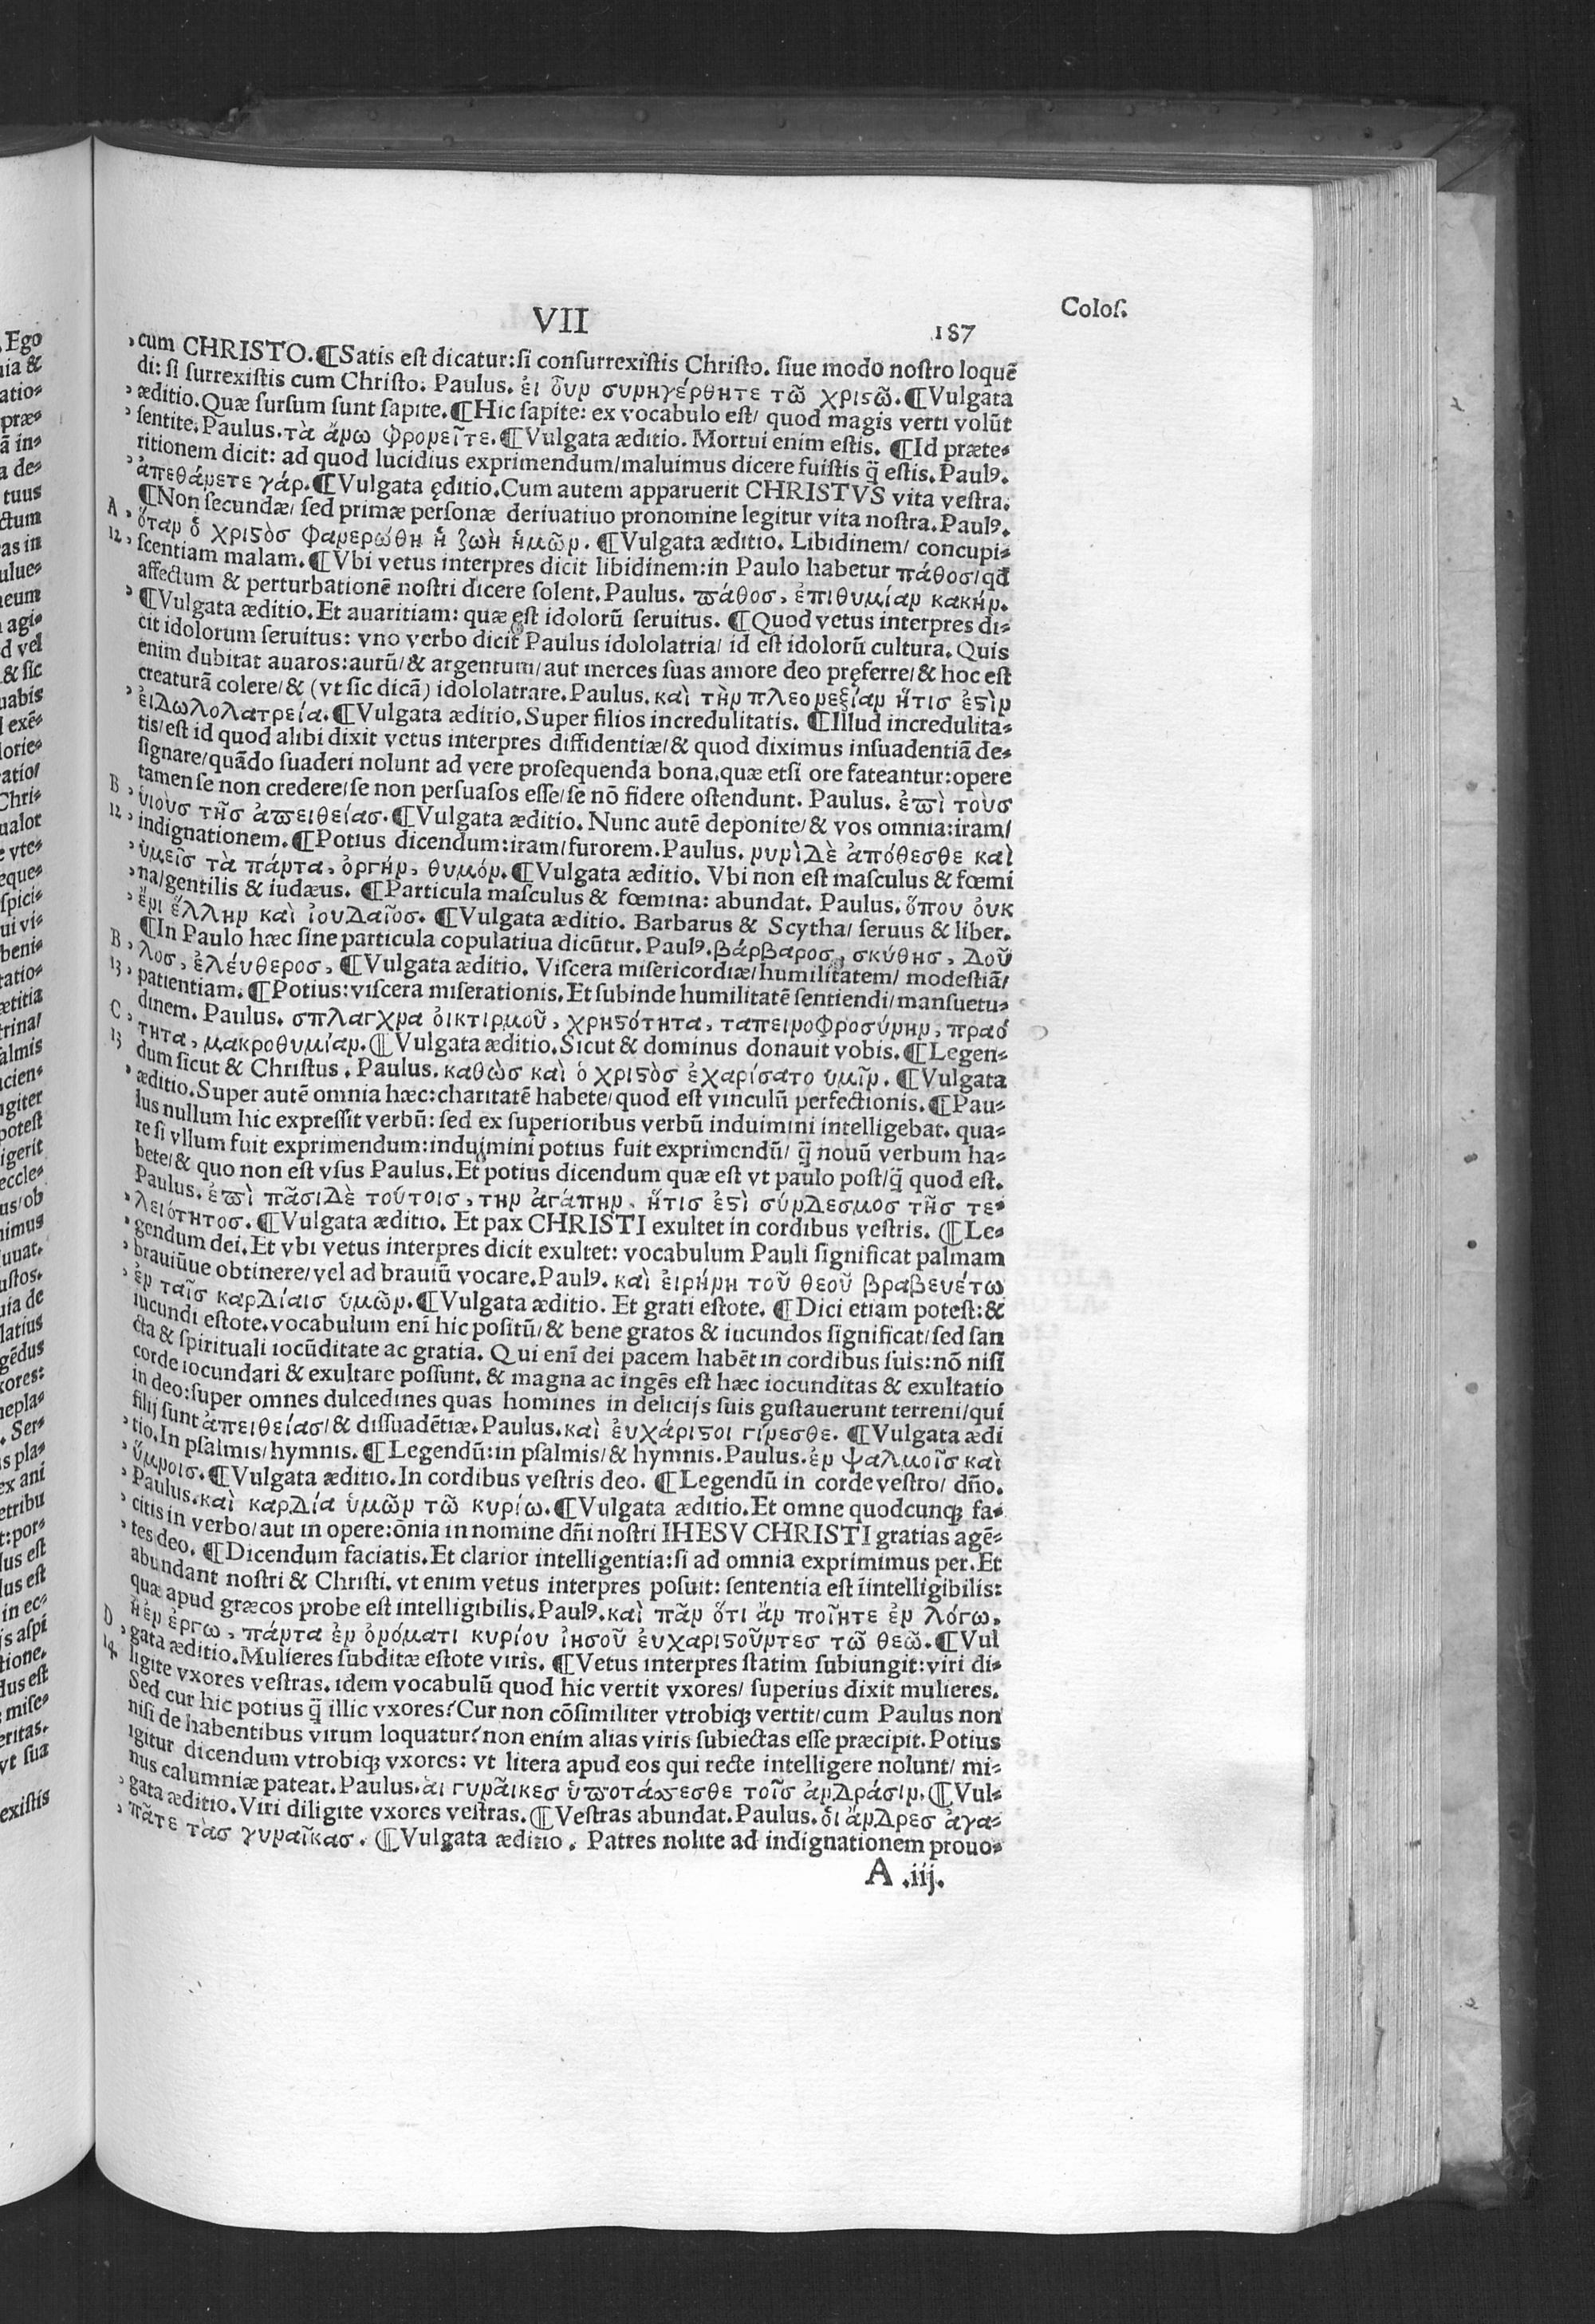 VII
187
Coloſ.
cum CHRISTO.¶Satis eſt dicatur:ſi conſurrexiſtis Chriſto. ſiue modo noſtro loquẽ
di: ſi ſurrexiſtis cum Chriſto. Paulus. ἐι ὀῦν συνηγέρθητε τῶ χριϛῶ.¶Vulgata
æditio.Quæ ſurſum ſunt ſapite.¶Hic ſapite: ex vocabulo eſt/ quod magis verti volũt
ſentite.Paulus.τὰ ἄνω φρονεῖτε.¶Vulgata æditio. Mortui enim eſtis. ¶Id præte⸗
ritionem dicit: ad quod lucidius exprimendum/maluimus dicere fuiſtis q̃ eſtis. Paulꝰ.
ἀπεθάνετε γάρ.¶Vulgata ęditio.Cum autem apparuerit CHRISTVS vita veſtra.
¶Non ſecundæ/ ſed primæ perſonæ deriuatiuo pronomine legitur vita noſtra.Paulꝰ.
A
ὅταν ὁ χριϛὸσ φανερώθη ἡ ζωὴ ἡμῶν. ¶Vulgata æditio. Libidinem/ concupi⸗
12
ſcentiam malam.¶Vbi vetus interpres dicit libidinem:in Paulo habetur πάθοσ/qd̃
affectum & perturbationẽ noſtri dicere ſolent.Paulus. ϖάθοσ, ἐπιθυμίαν κακήν.
¶Vulgata æditio.Et auaritiam: quæ eſt idolorũ ſeruitus. ¶Quod vetus interpres di⸗
cit idolorum ſeruitus: vno verbo dicit Paulus idololatria/ id eſt idolorũ cultura. Quis
enim dubitat auaros:aurũ/& argentum/aut merces ſuas amore deo pręferre/& hoc eſt
creaturã colere/& (vt ſic dicã) idololatrare.Paulus.καὶ τὴν πλεονεξίαν ἥτισ ἐϛὶν
ἐιδωλολατρεία.¶Vulgata æditio.Super filios incredulitatis. ¶Illud incredulita⸗
tis/eſt id quod alibi dixit vetus interpres diffidentiæ/& quod diximus inſuadentiã de⸗
ſignare/quãdo ſuaderi nolunt ad vere proſequenda bona.quæ etſi ore fateantur:opere
tamen ſe non credere/ſe non perſuaſos eſſe/ſe nõ fidere oſtendunt. Paulus. ἐϖὶ τοὺσ
B
ὑιοὺσ τῆσ ἀϖειθείασ.¶Vulgata æditio. Nunc autẽ deponite/& vos omnia:iram/
12
indignationem.¶Potius dicendum:iram/furorem.Paulus. νυνὶδὲ ἀπόθεσθε καὶ
ὑμεῖσ τὰ πάντα, ὀργήν, θυμόν.¶Vulgata æditio. Vbi non eſt maſculus & fœmi
na/gentilis & iudæus. ¶Particula maſculus & fœmina: abundat. Paulus.ὅπου ὀυκ
ἔνι ἕλλην καὶ ἰουδαῖοσ. ¶Vulgata æditio. Barbarus & Scytha/ ſeruus & liber.
¶In Paulo hæc ſine particula copulatiua dicũtur. Paulꝰ.βάρβαροσ, σκύθησ, δοῦ
B
λοσ, ἐλέυθεροσ, ¶Vulgata æditio. Viſcera miſericordiæ/humilitatem/ modeſtiã/
13
patientiam.¶Potius:viſcera miſerationis.Et ſubinde humilitatẽ ſentiendi/manſuetu⸗
dinem. Paulus. σπλαγχνα ὀικτιρμοῦ, χρηϛότητα, ταπεινοφροσύνην, πραό
C
τητα, μακροθυμίαν.¶Vulgata æditio.Sicut & dominus donauit vobis.¶Legen⸗
13
dum ſicut & Chriſtus. Paulus.καθὼσ καὶ ὁ χριϛὸσ ἐχαρίσατο ὑμῖν. ¶Vulgata
æditio.Super autẽ omnia hæc:charitatẽ habete/quod eſt vinculũ perfectionis.¶Pau⸗
lus nullum hic expreſſit verbũ: ſed ex ſuperioribus verbũ induimini intelligebat. qua⸗
re ſi vllum fuit exprimendum:induimini potius fuit exprimendũ/ q̃ nouũ verbum ha⸗
bete/& quo non eſt vſus Paulus.Et potius dicendum quæ eſt vt paulo poſt/q̃ quod eſt.
Paulus. ἐϖὶ πᾶσιδὲ τούτοισ, την ἀγάπην, ἥτισ ἐϛὶ σύνδεσμοσ τῆσ τε⸗
λειότητοσ.¶Vulgata æditio. Et pax CHRISTI exultet in cordibus veſtris. ¶Le⸗
gendum dei.Et vbi vetus interpres dicit exultet: vocabulum Pauli ſignificat palmam
brauiũue obtinere/vel ad brauiũ vocare.Paulꝰ. καὶ ἐιρήνη τοῦ θεοῦ βραβευέτω
ἐν ταῖσ καρδίαισ ὑμῶν.¶Vulgata æditio. Et grati eſtote. ¶Dici etiam poteſt:&
iucundi eſtote.vocabulum eni̅ hic poſitũ/& bene gratos & iucundos ſignificat/ſed ſan
cta & ſpirituali iocũditate ac gratia. Qui eni̅ dei pacem habẽt in cordibus ſuis:nõ niſi
corde iocundari & exultare poſſunt. & magna ac ingẽs eſt hæc iocunditas & exultatio
in deo:ſuper omnes dulcedines quas homines in delicijs ſuis guſtauerunt terreni/qui
filij ſunt ἀπειθείασ/& diſſuadẽtiæ.Paulus.καὶ ἐυχάριϛοι γίνεσθε. ¶Vulgata ædi
tio.In pſalmis/hymnis.¶Legendũ:in pſalmis/& hymnis.Paulus.ἐν ψαλμοῖσ καὶ
ὕμνοισ.¶Vulgata æditio.In cordibus veſtris deo. ¶Legendũ in corde veſtro/ dño.
Paulus.καὶ καρδία ὑμῶν τῶ κυρίω.¶Vulgata æditio.Et omne quodcunq; fa⸗
citis in verbo/aut in opere:õnia in nomine dñi noſtri IHESV CHRISTI gratias agẽ⸗
tes deo. ¶Dicendum faciatis.Et clarior intelligentia:ſi ad omnia exprimimus per.Et
abundant noſtri & Chriſti.vt enim vetus interpres poſuit: ſententia eſt i̅intelligibilis:
quæ apud græcos probe eſt intelligibilis.Paulꝰ.καὶ πᾶν ὅτι ἄν ποῖητε ἐν λόγω,
D
ἢἐν ἐργω, πάντα ἐν ὀνόματι κυρίου ἰησοῦ ἐυχαριϛοῦντεσ τῶ θεῶ.¶Vul
14
gata æditio.Mulieres ſubditæ eſtote viris. ¶Vetus interpres ſtatim ſubiungit:viri di⸗
ligite vxores veſtras. idem vocabulũ quod hic vertit vxores/ ſuperius dixit mulieres.
Sed cur hic potius q̃ illic vxores? Cur non cõſimiliter vtrobiq; vertit/cum Paulus non
niſi de habentibus virum loquatur? non enim alias viris ſubiectas eſſe præcipit. Potius
igitur dicendum vtrobiq; vxores: vt litera apud eos qui recte intelligere nolunt/ mi⸗
nus calumniæ pateat.Paulus.ἁι γυνᾶικεσ ὑϖοτάσσεσθε τοῖσ ἀνδράσιν.¶Vul⸗
gata æditio.Viri diligite vxores veſtras.¶Veſtras abundat.Paulus.ὁι ἄνδρεσ ἀγα⸗
πᾶτε τὰσ γυναῖκασ. ¶Vulgata æditio. Patres nolite ad indignationem prouo⸗
A .iij.